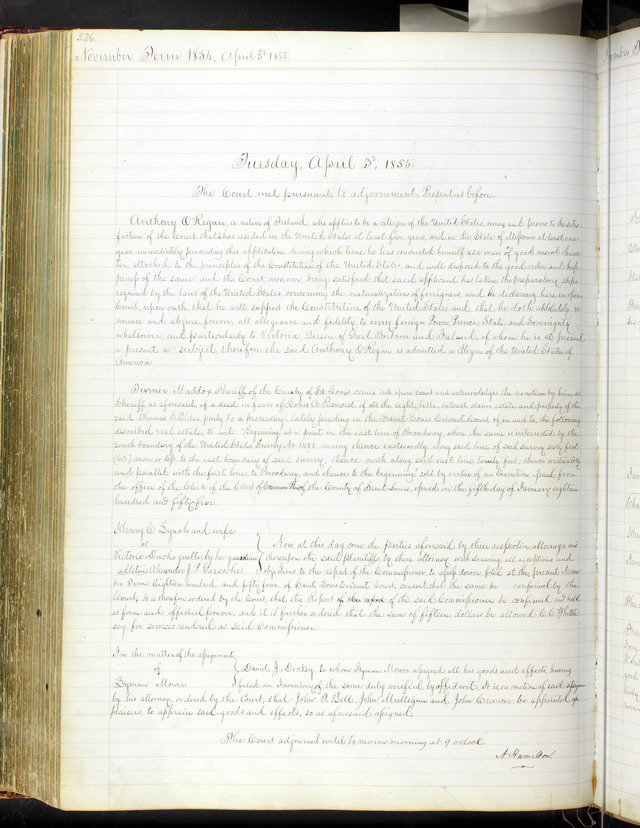 526.
November Term 1854. April 3d 1855.
Tuesday, April 3d, 1855.
The Court met pursuant to adjournment. Present as before.
Anthony O'Regan, a native of Ireland who applies to be a citizen of the United States, comes and proves to the satis
faction of the Court that he has resided in the United States at least five years and in the State of Missouri at least one
year, immediately preceding this application, during which time he has conducted himself as a man of good moral charac
ter, attached to the principles of the Constitution of the United States, and well disposed to the good order and hap
piness of the same and the Court moreover being satisfied that said applicant has taken the preparatory steps
required by the laws of the United States concerning the naturalization of foreigners and he declaring here in open
Court, upon oath, that he will support the Constitution of the United States and that he doth absolutely re
nounce and abjure forever, all allegiance and fidelity to every foreign Power, Prince, State and Sovereignty
whatsoever, and particularly to Victoria, Queen of Great Britain and Ireland, of whom he is at present
a present a subject, therefore the said Anthony O'Regan is admitted a Citizen of the United States of
America
Maddox Sheriff of the County of St Louis comes into open court and acknowledges the execution by him as
Sheriff as aforesaid of a deed in favor of Louis A Benoist, of all the right, title, interest, claim, estate and property of the
said Thomas party to a proceeding lately pending in the Saint Louis Circuit Court of, in and to, the following
described real estate, to wit: "Beginning at a point in the east line of Broadway, where the same is intersected by the
south boundary of the United States Survey No 1455, running thence eastwardly along said line of said survey sixty feet
(60) more or less to the east boundary of said survey, thence north along said east line twenty feet, thence westwardly
and parallel with the first line to Broadway, and thence to the beginning" sold by virtue of an Execution issued from
the office of the Clerk of the Court of Common Pleas of the County of Saint Louis, issued on the fifth day of January eighteen
hundred and fifty five
Henry C Lynch and wife
vs
Victoria by her guardian
ad litem Alexander J P
Now at this day come the parties aforesaid by their respective attorneys and
thereupon the said plaintiffs by their attorney withdrawing all exceptions and
objections to the report of the Commissioner to assign dower filed at the present Novem
ber Term Eighteen hundred and fifty four, of Saint Louis Circuit Court, consent that the same be confirmed by the
Court, It is therefore ordered by the Court, that the Report of the report of the said Commissioner be confirmed and held
as firm and effectual forever, and it is further ordered, that the sum of fifteen dollars be allowed C C Whittle
sey, for services rendered as said Commissioner.
In the matter of the assignment
of
Lyman Mower
David J. Dickey, to whom Lyman Mower assigned all his goods and effects having
filed an Inventory of the same duly verified by affidavit, It is on motion of said assignee
by his attorney, ordered by the Court, that John D. Bell John Mulligan and John Crancer be appointed ap
praisers, to appraise said goods and effects, so as aforesaid assigned.
The Court adjourned until to morrow morning at 9 oclock
A. Hamilton.